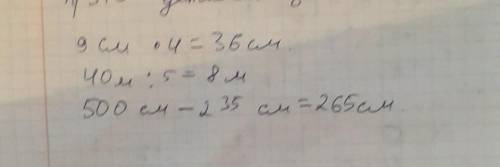 9 см · 4 = 36 см.
40 м : 5 = 8 м
500 см - 235 см = 265 см.